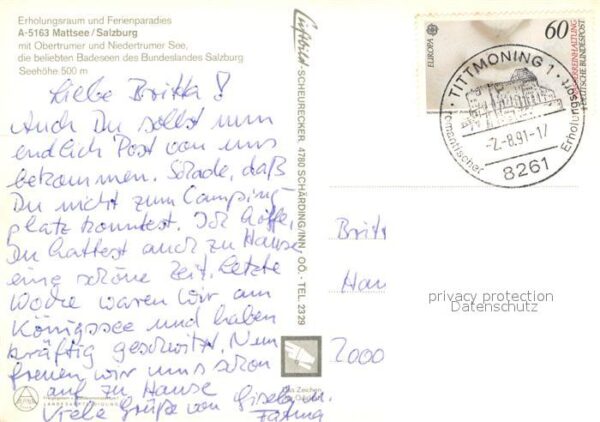 Erholungsraum und Ferienparadies
A-5163 Mattsee/Salzburg
mit Obertrumer und Niedertrumer See,
die beliebten Badeseen des Bundeslandes Salzburg
Seehöhe 500 m
Liebe Britta!
Auch Du sollst nun
endlich Post von uns
bekommen. Schade, daß
Du nicht zum Camping-
platz konntest. Ich hoffe,
Du hattest auch zu Hause
eine schöne Zeit. Letzte
Woche waren wir am
Königssee und haben
kräftig geschwitzt. Nun
freuen wir uns schon
auf zu Hause
Viele Grüße von Gisela u.
Luftbild-SCHEURECKER, 4780 SCHÄRDING/INN, OÖ. - TEL. 2329
EUROPA
60
DEUTSCHE BUNDESPOST
TITTMONING 1
-2.-8.91-17
8261
romantischer
Erholung
Brit
Han
2000
privacy protection
Datenschutz
Das Zeichen